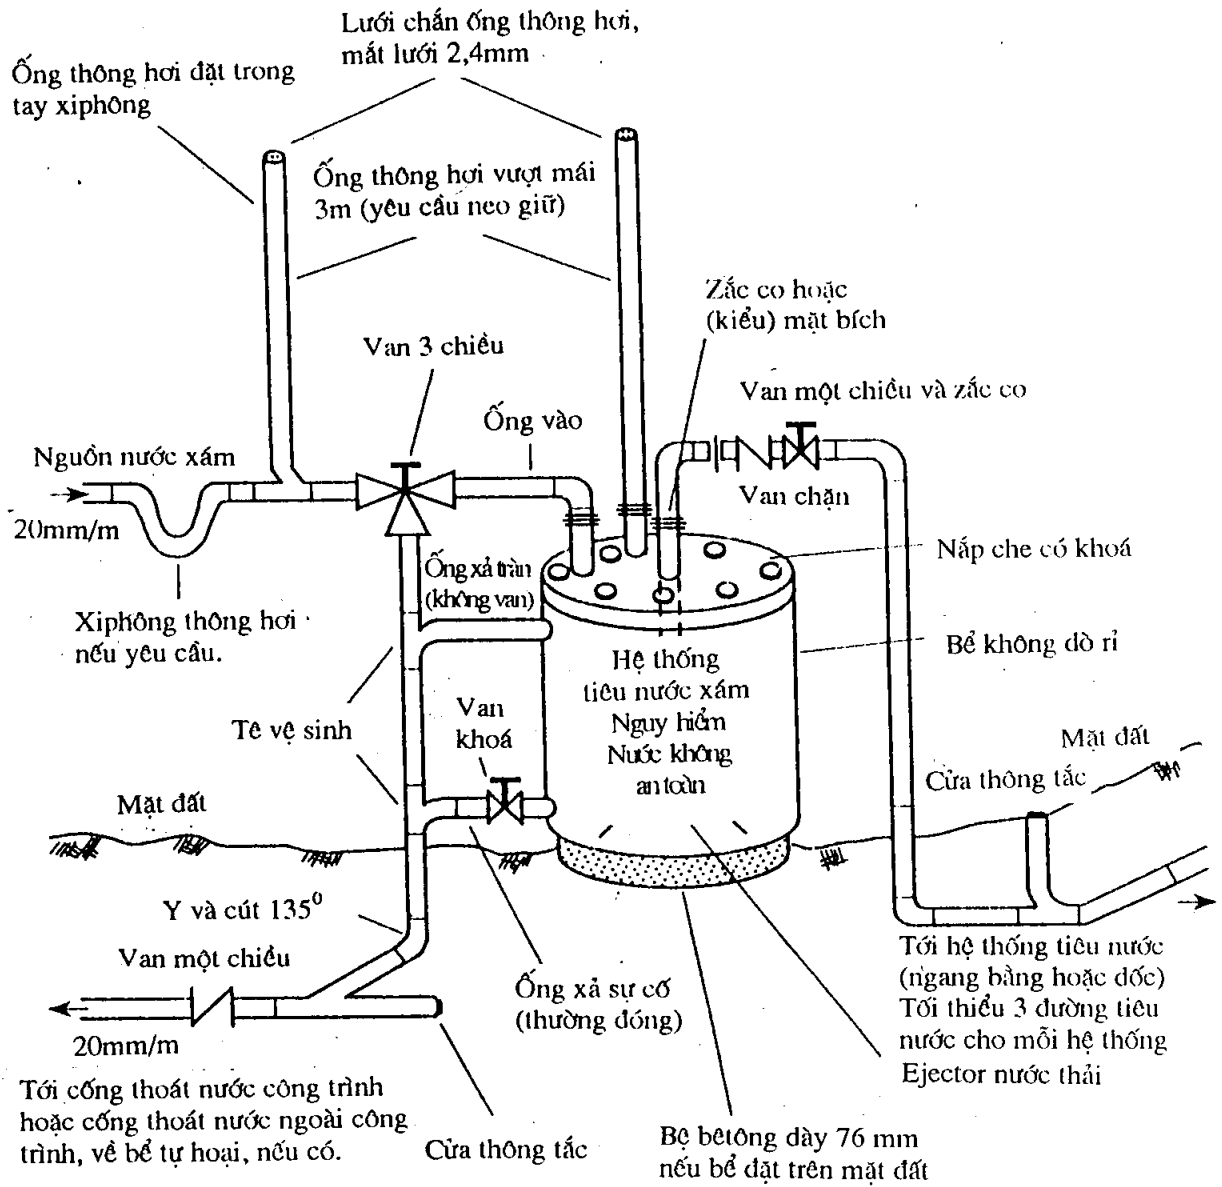 Lưới chắn ống thông hơi,
mắt lưới 2,4mm
Ống thông hơi đặt trong
tay xiphông
Ống thông hơi vượt mái
3m (yêu cầu neo giữ)
Zắc co hoặc
(kiểu) mặt bích
Van 3 chiều
Van một chiều và zắc co
Ống vào
Nguồn nước xám
20mm/m
Van chặn
Nắp che có khoá
Ống xả tràn
(không van)
Xiphông thông hơi
nếu yêu cầu.
Bể không dò rỉ
Hệ thống
tiêu nước xám
Nguy hiểm
Nước không
an toàn
Van
khoá
Tê vệ sinh
Mặt đất
Cửa thông tắc
Mặt đất
Y và cút 135⁰
Van một chiều
Ống xả sự cố
(thường đóng)
Tới hệ thống tiêu nước
(ngang bằng hoặc dốc)
Tối thiểu 3 đường tiêu
nước cho mỗi hệ thống
Ejector nước thải
20mm/m
Tới cống thoát nước công trình
hoặc cống thoát nước ngoài công
trình, về bể tự hoại, nếu có.
Cửa thông tắc
Bệ bêtông dày 76 mm
nếu bể đặt trên mặt đất